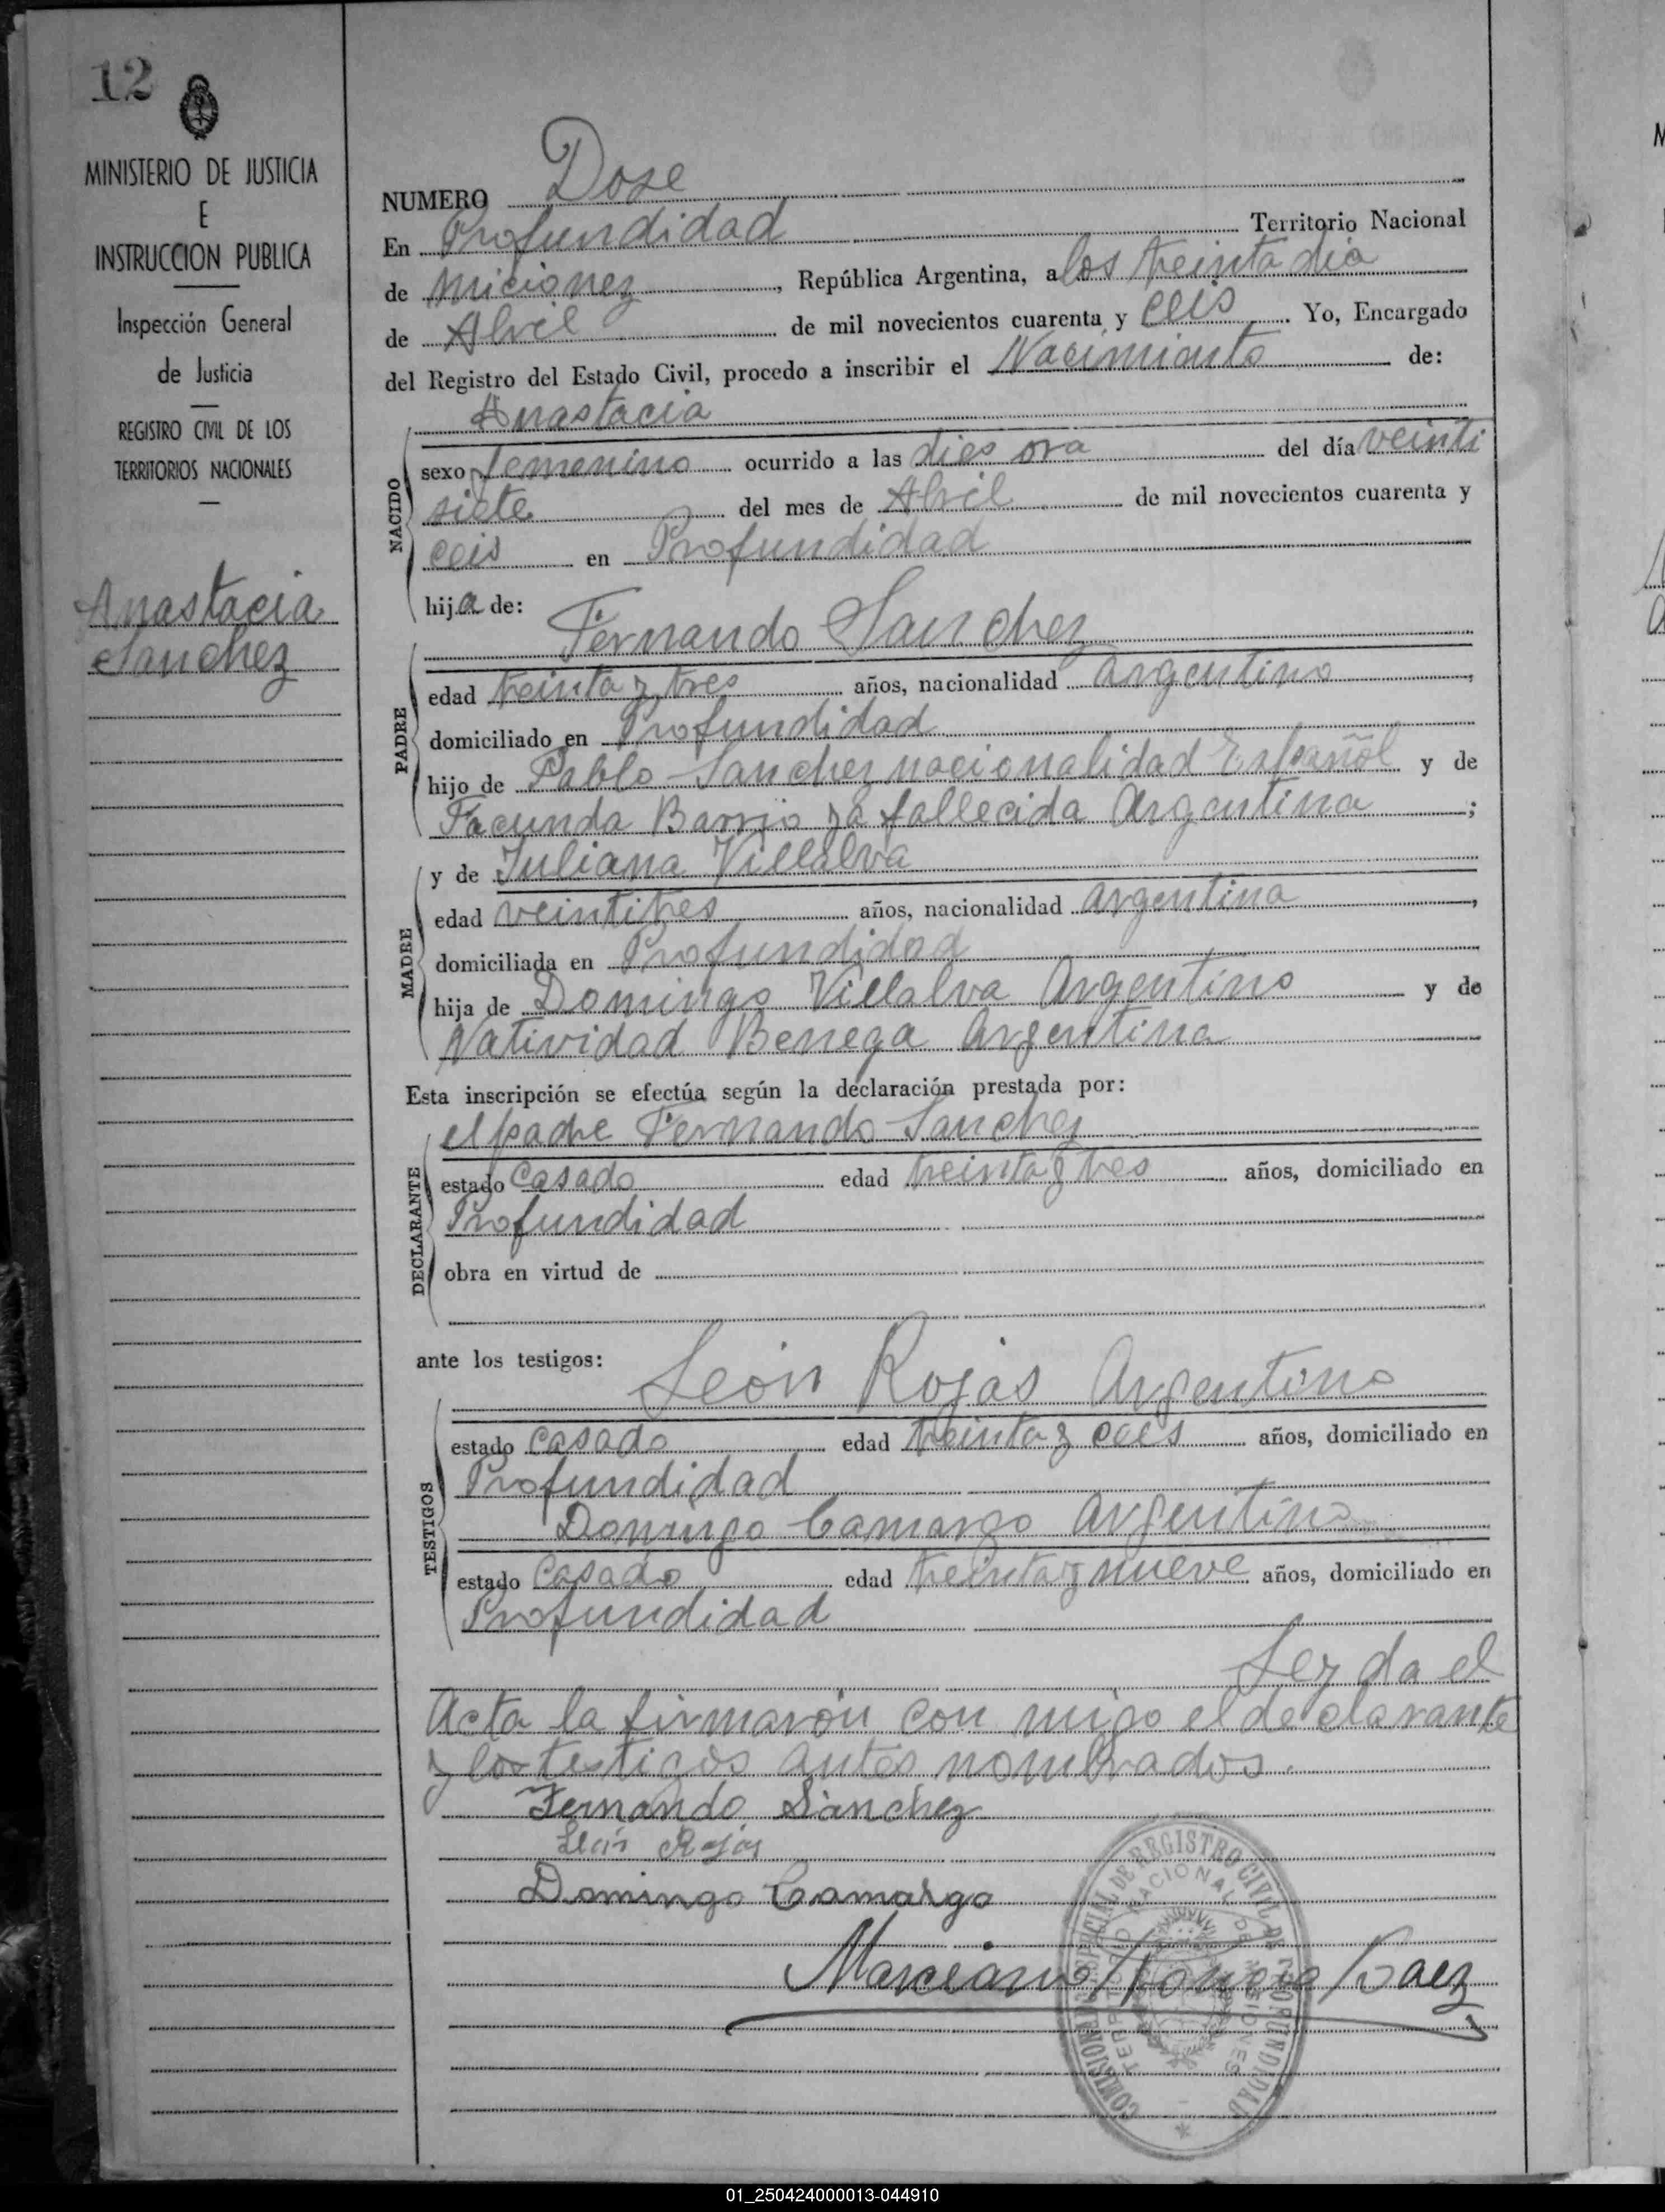 12
MINISTERIO DE JUSTICIA
E
INSTRUCCION PUBLICA
Inspección General
de Justicia
REGISTRO CIVIL DE LOS
TERRITORIOS NACIONALES
Anastacia
Sanchez
NUMERO Dose
En Profundidad Territorio Nacional
de miciones, República Argentina, a los treinta dia
de Abril de mil novecientos cuarenta y ceis. Yo, Encargado
del Registro del Estado Civil, procedo a inscribir el Nacimiento de:
Anastacia
NACIDO
sexo femenino ocurrido a las dies ora del día veinti
siete del mes de Abril de mil novecientos cuarenta y
ceis en Profundidad
hija de:
Fernando Sanchez
PADRE
edad treinta y tres años, nacionalidad argentino,
domiciliado en Profundidad
hijo de Pablo Sanchez nacionalidad Español y de
Facunda Barrio ya fallecida Argentina;
y de Juliana Villalva
MADRE
edad veintitres años, nacionalidad argentina,
domiciliada en Profundidad
hija de Domingo Villalva Argentino y de
Natividad Benega Argentina
Esta inscripción se efectúa según la declaración prestada por:
el padre Fernando Sanchez
DECLARANTE
estado casado edad treinta y tres años, domiciliado en
Profundidad
obra en virtud de
ante los testigos:
León Rojas Argentino
TESTIGOS
estado casado edad treinta y ceis años, domiciliado en
Profundidad
Domingo Camargo Argentino
estado casado edad treinta y nueve años, domiciliado en
Profundidad
Leyda el
Acta la firmarón con migo el declarante
y los testigos antes nombrados.
Fernando Sanchez
León Rojas
Domingo Camargo
Marciano Baez
COMISION DE REGISTRO CIVIL DE PROFUNDIDAD
TERRITORIO NACIONAL DE MISIONES
01_250424000013-044910